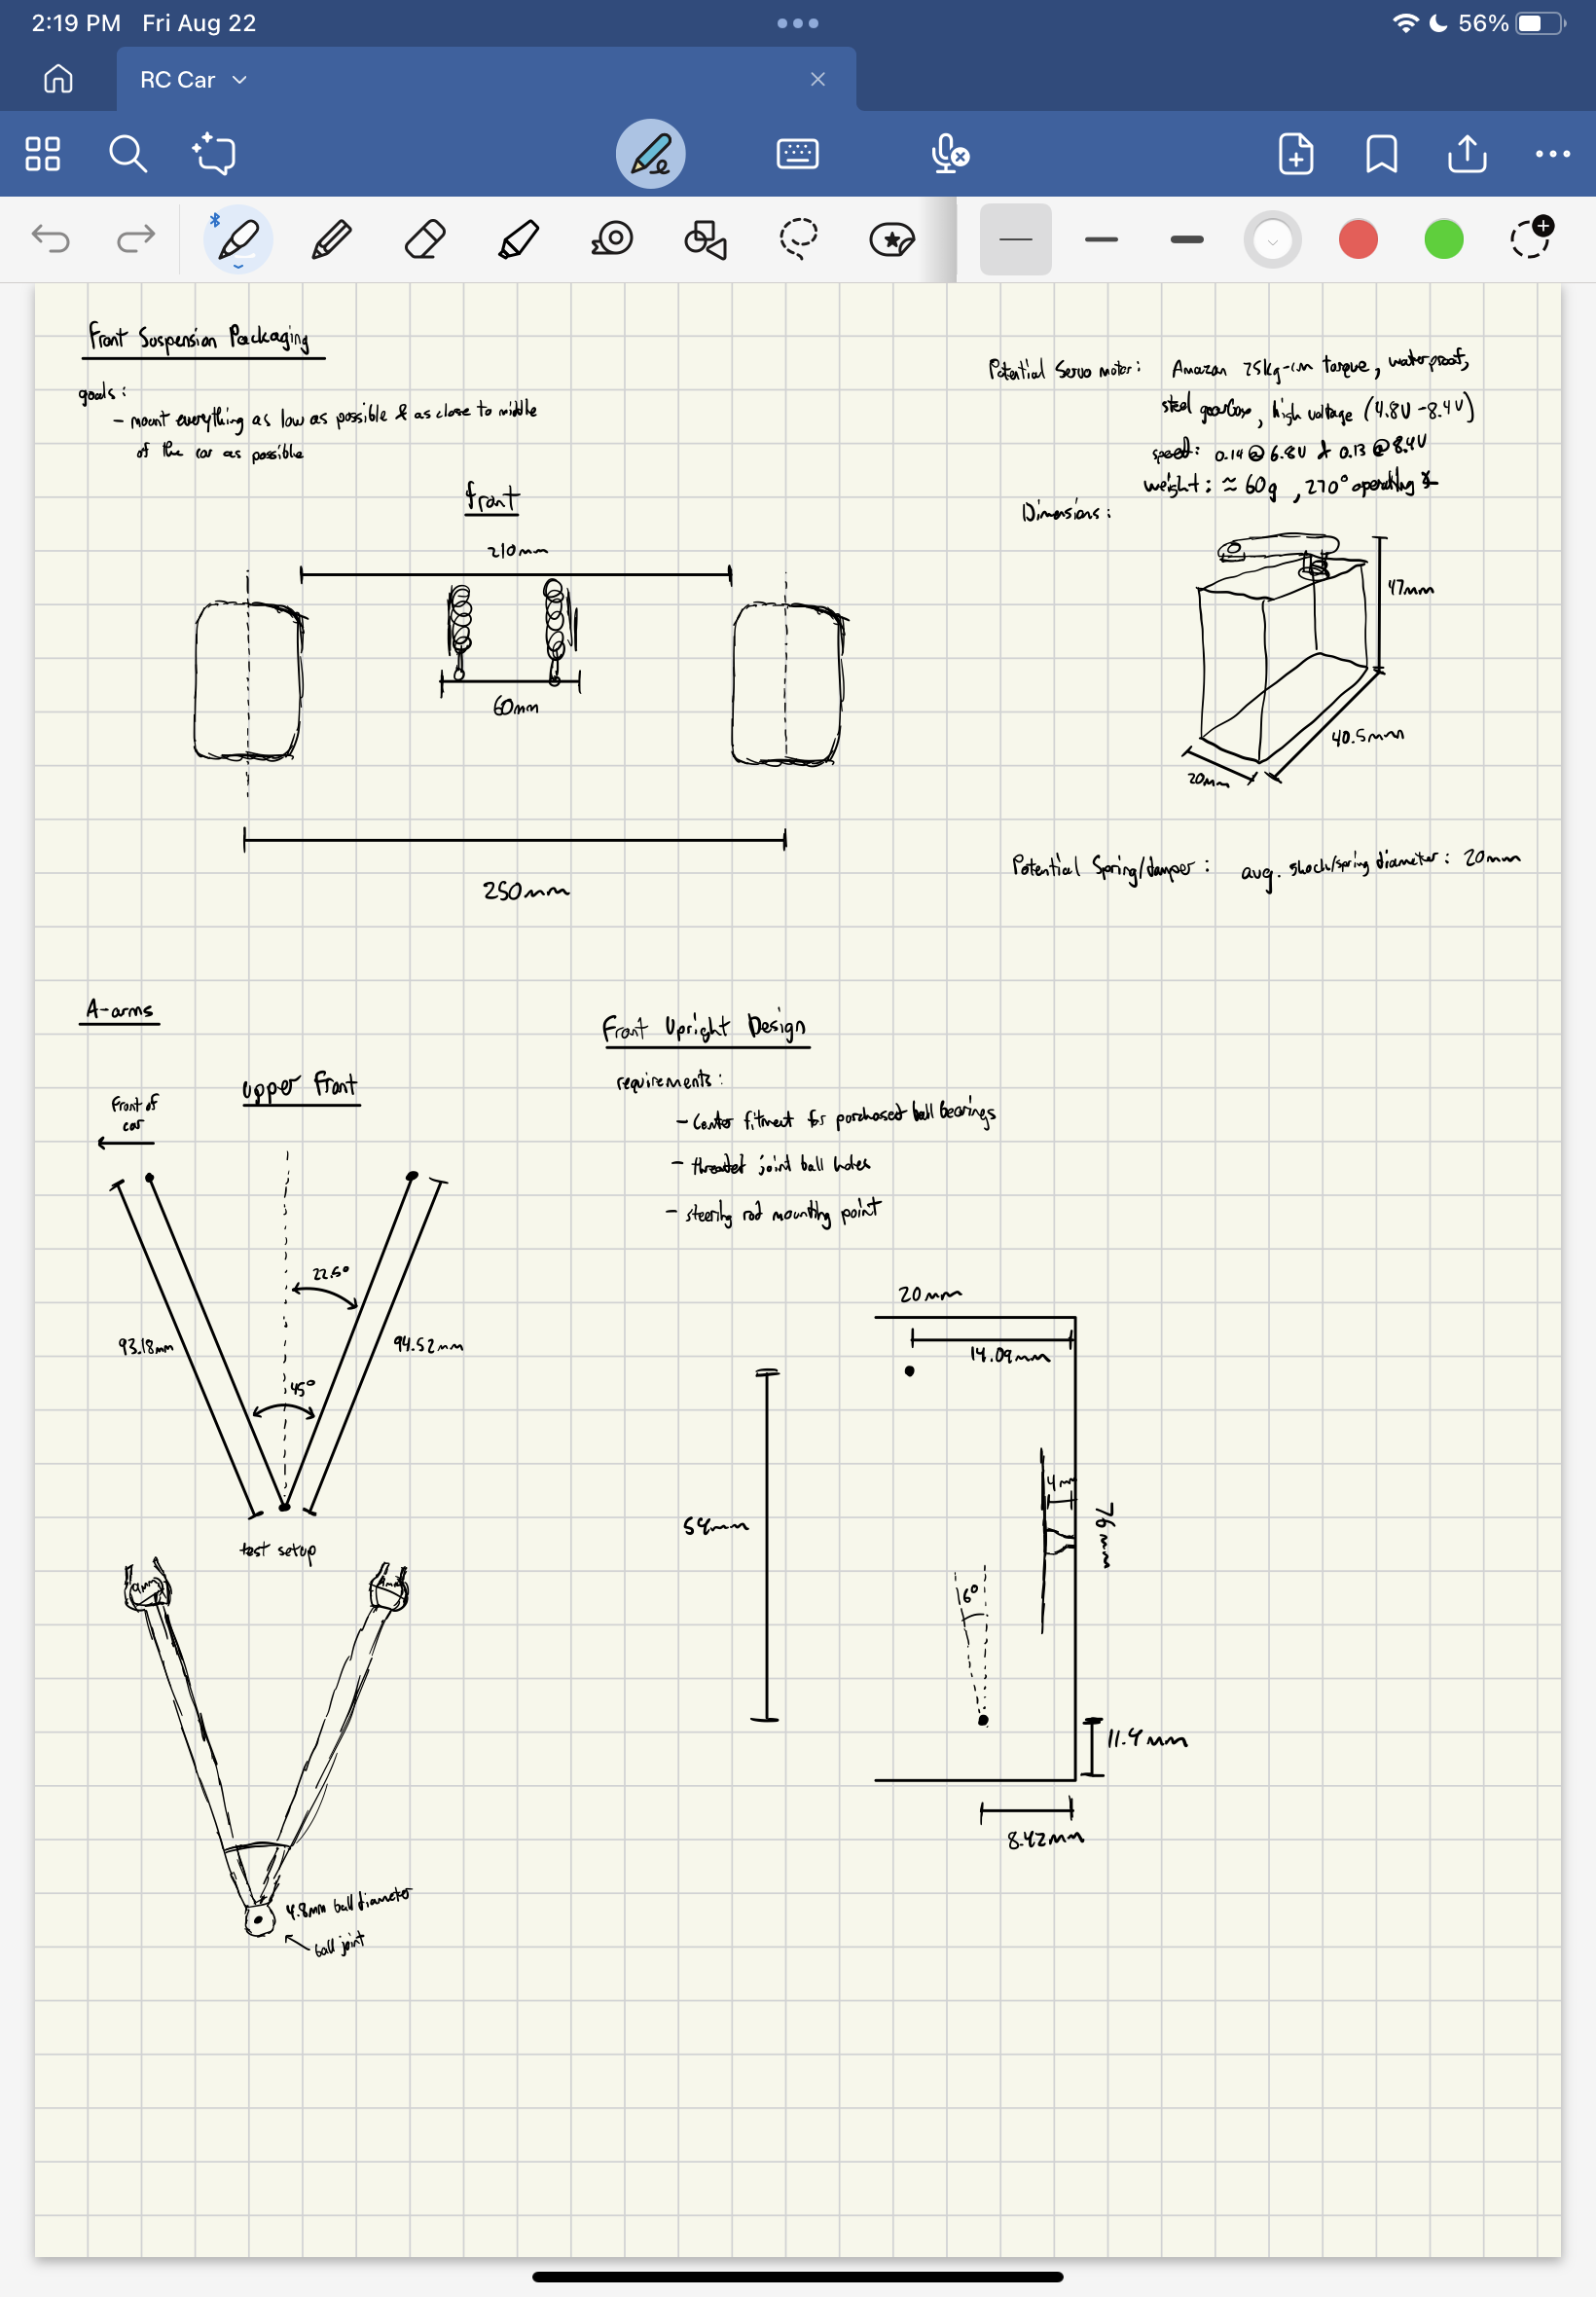 2:19 PM Fri Aug 22
56%
RC Car
Front Suspension Packaging
goals:
- mount everything as low as possible & as close to middle
of the car as possible
Potential Servo motor: Amazon 25kg-cm torque, waterproof,
steel gearbox, high voltage (4.8V-8.4V)
speed: 0.14@6.8V & 0.13@8.4V
weight: ≈60g, 270° operating ∡
Dimensions:
front
210mm
60mm
250mm
47mm
40.5mm
20mm
Potential Spring/damper: avg. shock/spring diameter: 20mm
A-arms
upper front
Front of
car
22.5°
93.18mm
94.52mm
45°
test setup
4.8mm ball diameter
ball joint
Front Upright Design
requirements:
- Center fitment for purchased ball bearings
- threaded joint ball holes
- steering rod mounting point
20mm
14.09mm
54mm
4mm
76mm
6°
11.4mm
8.42mm